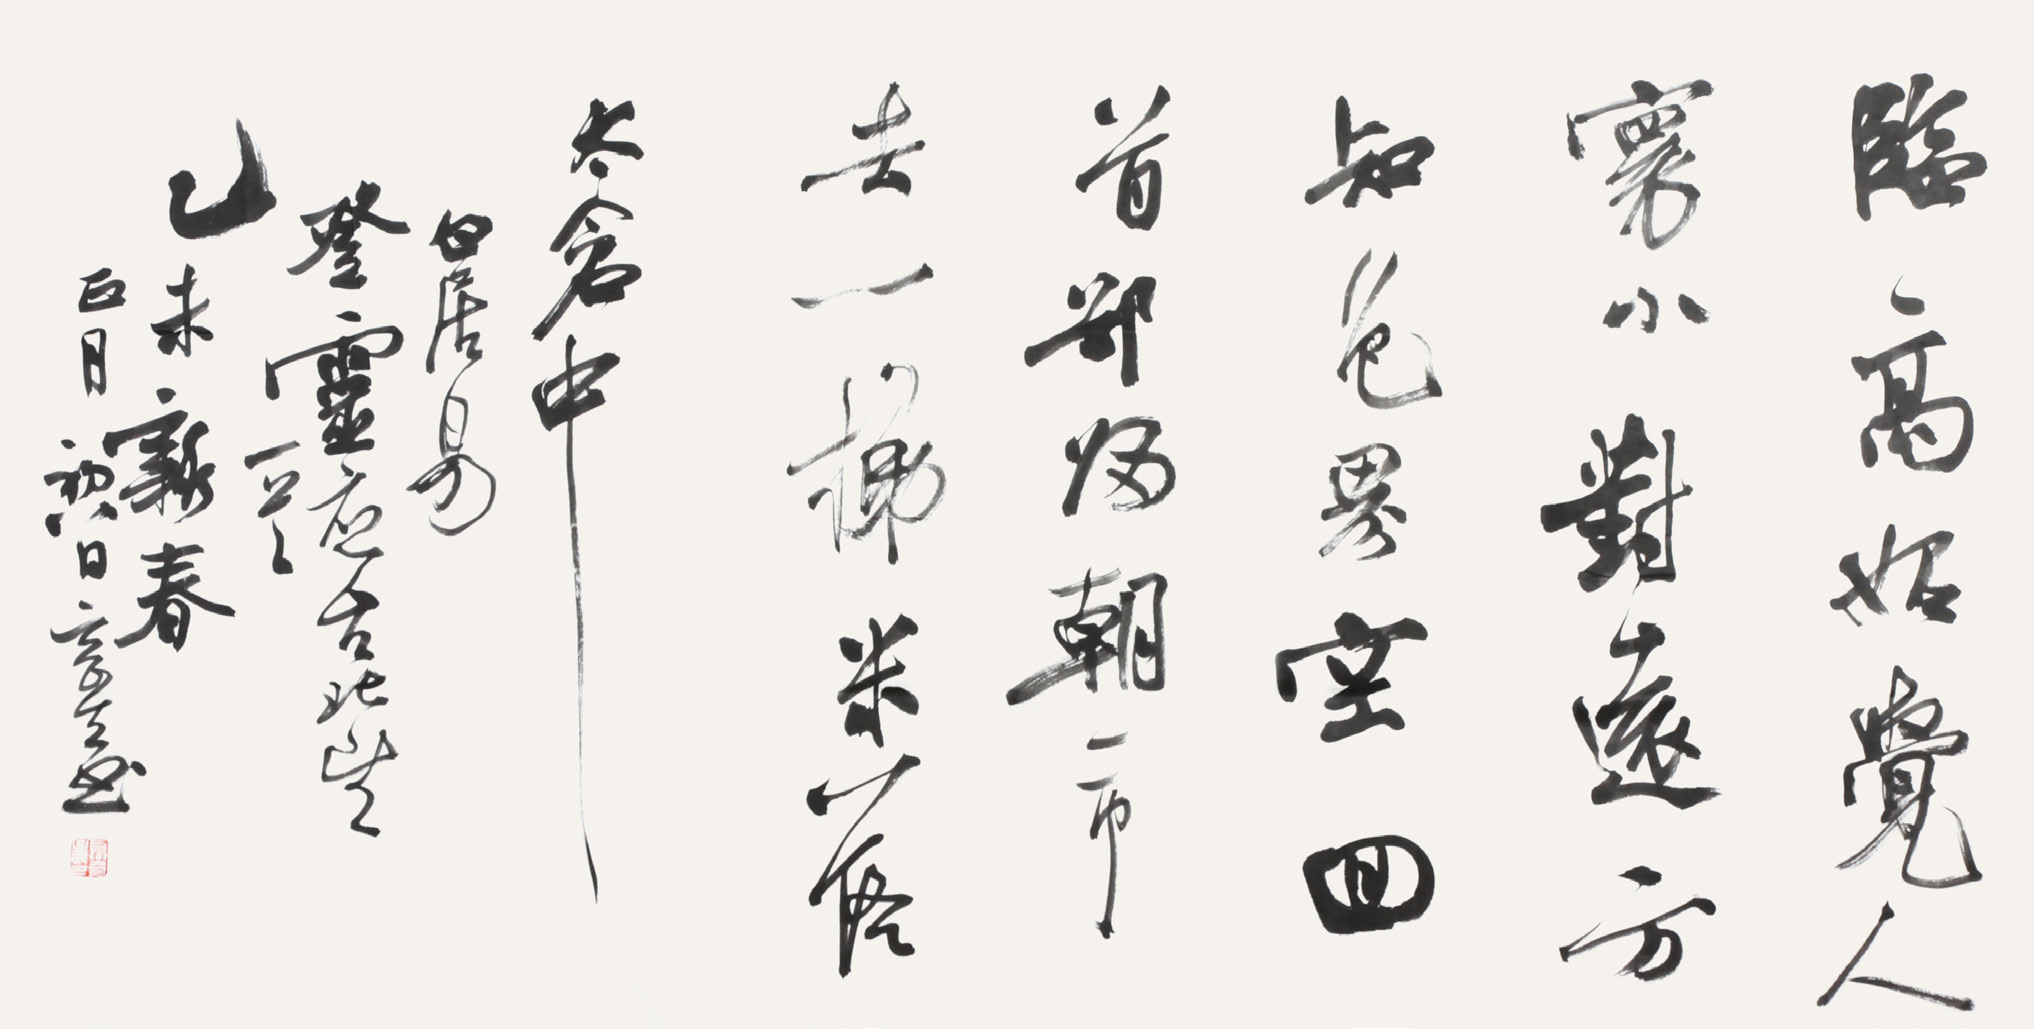 臨高始覺人
寰小對遠方
知色界空回
首却歸朝市
去一梯米落
太倉中
白居易
登靈應台北望
一首
乙未新春
正月初八日